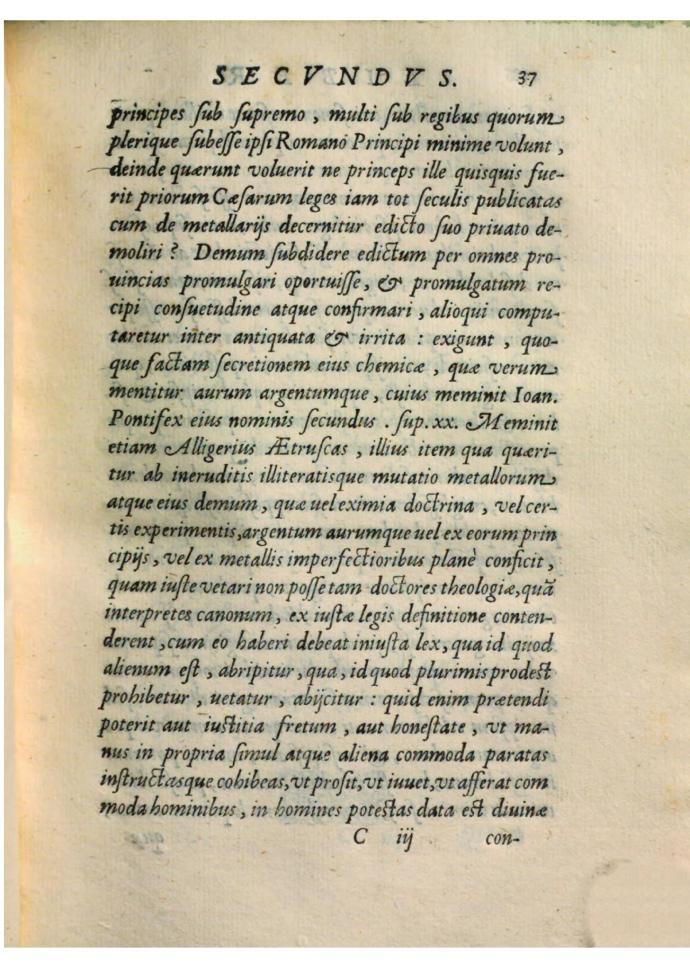 SECVNDVS. 37
principes sub supremo, multi sub regibus quorum
plerique subesse ipsi Romano Principi minime volunt,
deinde quærunt voluerit ne princeps ille quisquis fue-
rit priorum Cæsarum leges iam tot seculis publicatas
cum de metallarijs decernitur edicto suo priuato de-
moliri? Demum subdidere edictum per omnes pro-
uincias promulgari oportuisse, & promulgatum re-
cipi consuetudine atque confirmari, alioqui compu-
taretur inter antiquata & irrita: exigunt, quo-
que factam secretionem eius chemicæ, quæ verum
mentitur aurum argentumque, cuius meminit Ioan.
Pontifex eius nominis secundus. sup. xx. Meminit
etiam Alligerius Ætruscas, illius item qua quæri-
tur ab ineruditis illiteratisque mutatio metallorum
atque eius demum, quæ uel eximia doctrina, vel cer-
tis experimentis, argentum aurumque uel ex eorum prin
cipijs, vel ex metallis imperfectioribus planè conficit,
quam iuste vetari non posse tam doctores theologiæ, quã
interpretes canonum, ex iustæ legis definitione conten-
derent, cum eo haberi debeat iniusta lex, qua id quod
alienum est, abripitur, qua, id quod plurimis prodest
prohibetur, uetatur, abijcitur: quid enim prætendi
poterit aut iustitia fretum, aut honestate, vt ma-
nus in propria simul atque aliena commoda paratas
instructasque cohibeas, vt prosit, vt iuuet, vt afferat com
moda hominibus, in homines potestas data est diuinæ
C iij con-